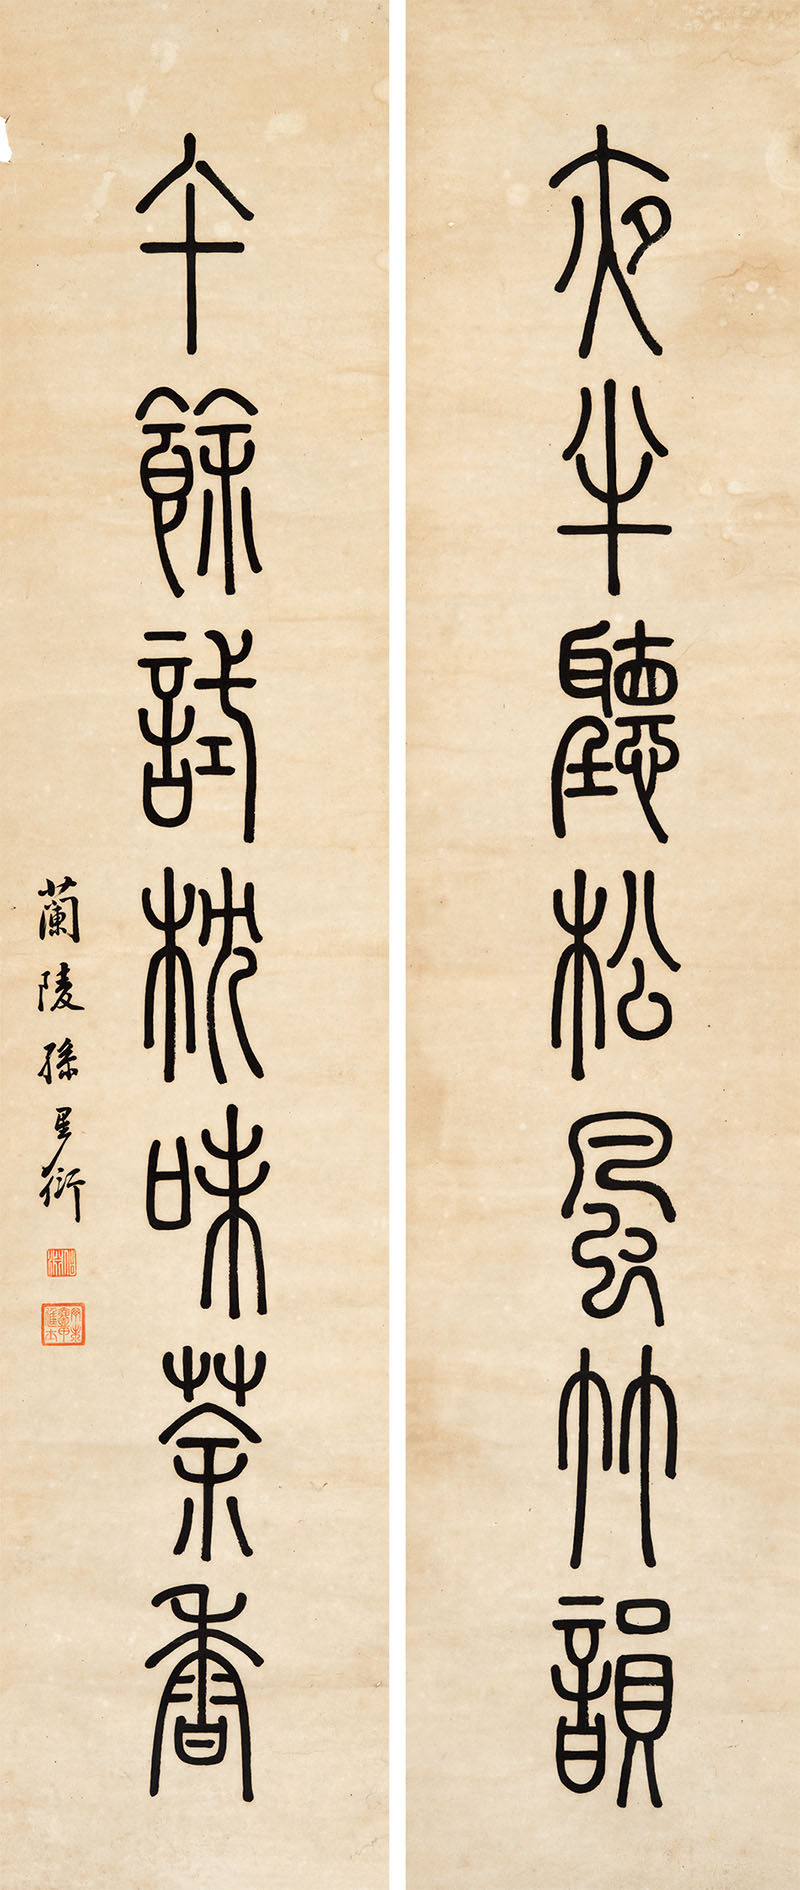 夜半聽松風竹韻
午餘試味茶香
蘭陵孫星衍